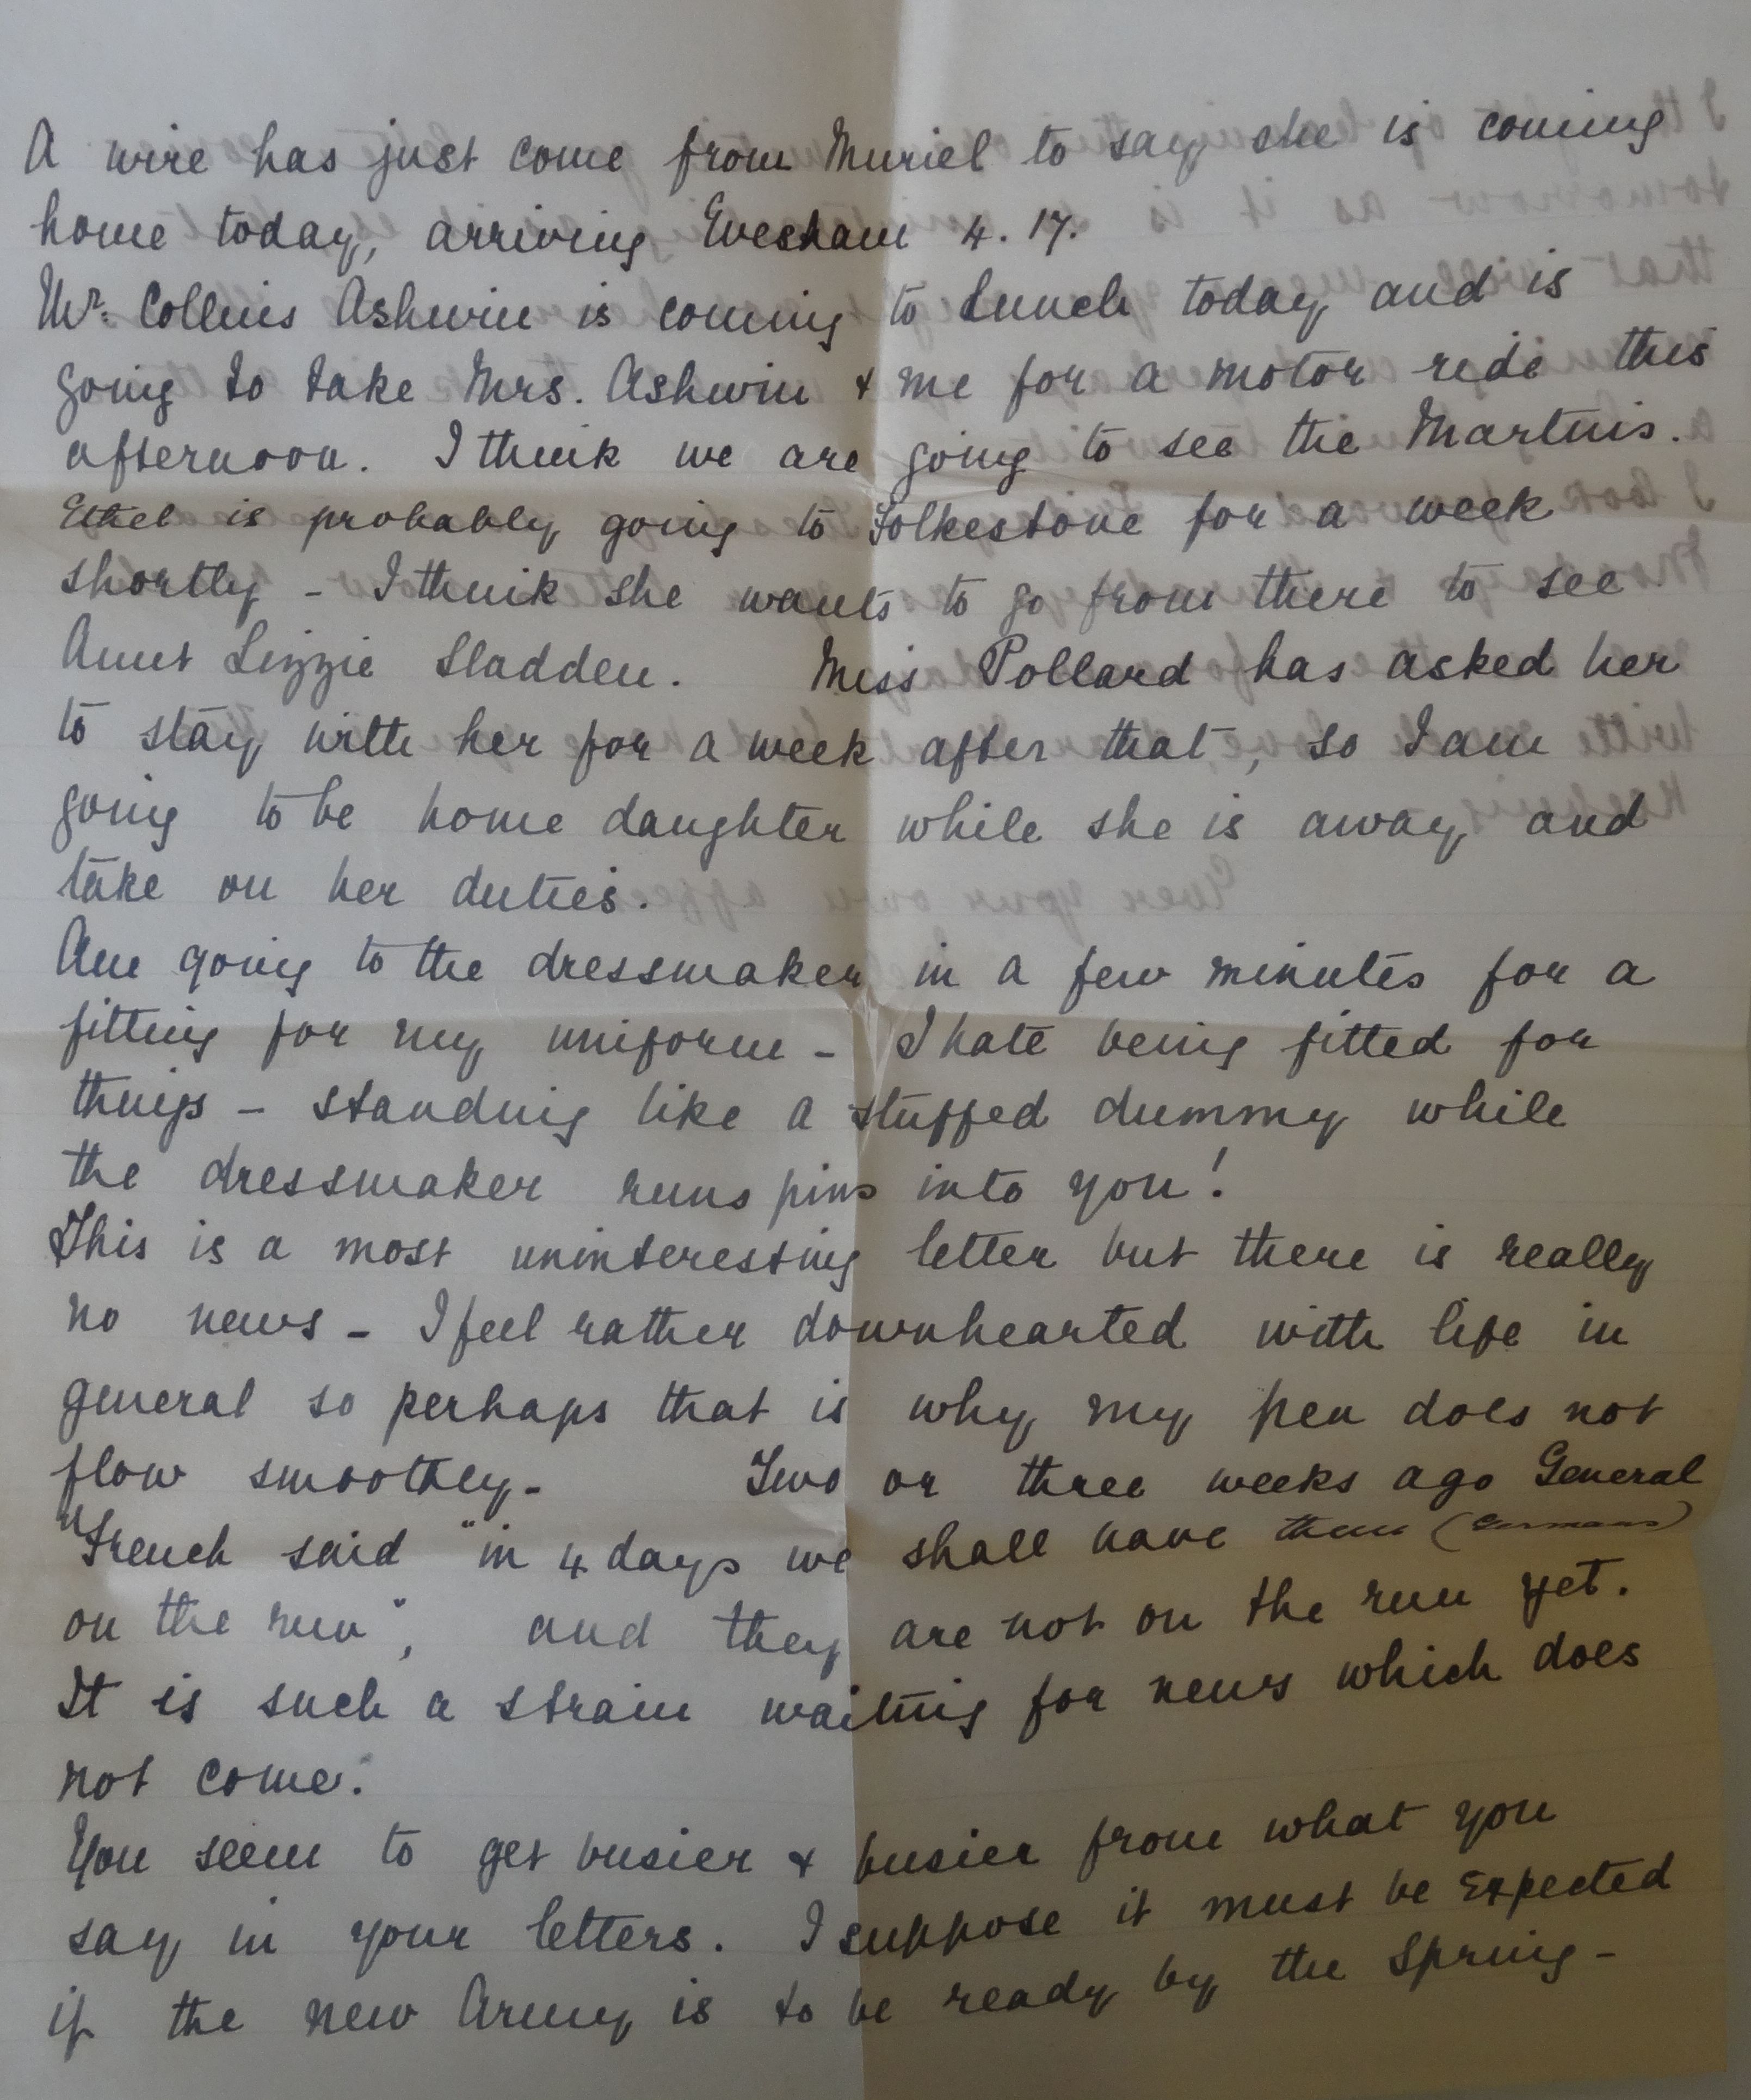 A wire has just come from Muriel to say she is coming
home today, arriving Evesham 4.17.
Mr. Collins Ashwin is coming to lunch today and is
going to take Mrs. Ashwin & me for a motor ride this
afternoon. I think we are going to see the Martins.
Ethel is probably going to Folkestone for a week
shortly - I think she wants to go from there to see
Aunt Lizzie Sladden. Miss Pollard has asked her
to stay with her for a week after that, so I am
going to be home daughter while she is away and
take on her duties.
Am going to the dressmaker in a few minutes for a
fitting for my uniform - I hate being fitted for
things - standing like a stuffed dummy while
the dressmaker runs pins into you!
This is a most uninteresting letter but there is really
no news - I feel rather downhearted with life in
general so perhaps that is why my pen does not
flow smoothly - Two or three weeks ago General
French said "in 4 days we shall have them (Germans)
on the run", and they are not on the run yet.
It is such a strain waiting for news which does
not come.
You seem to get busier & busier from what you
say in your letters. I suppose it must be expected
if the new Army is to be ready by the Spring -